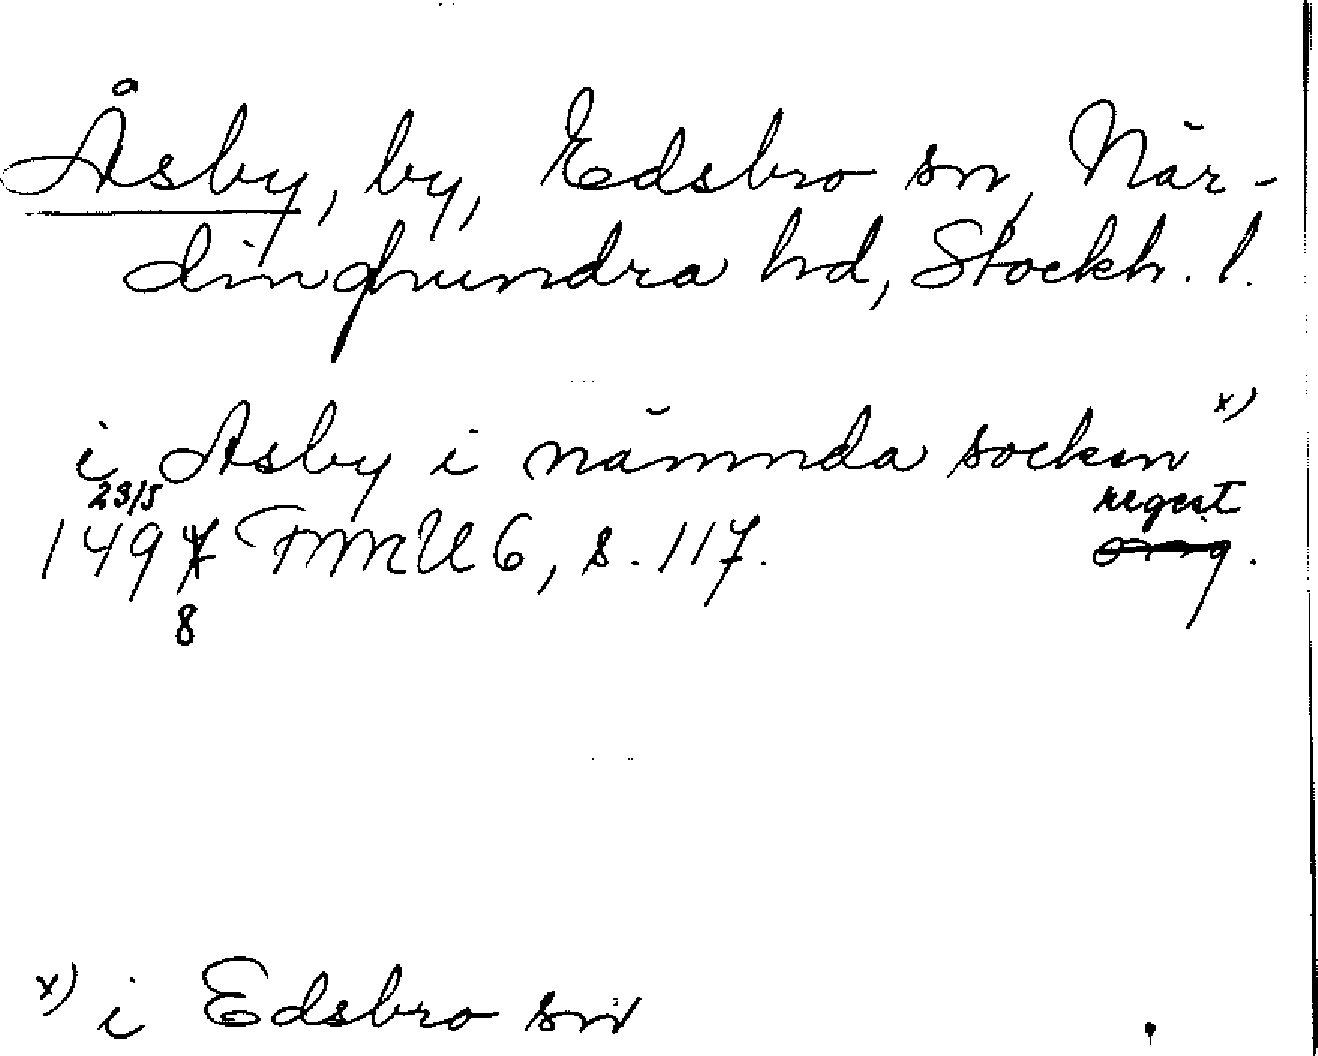 Åsby, by, Edsbro sn, När-
dinghundra hd, Stockh. l.
i Åsby i nämnda socken x)
23/5 regest
1498 FMU 6, s. 117.
x) i Edsbro sn